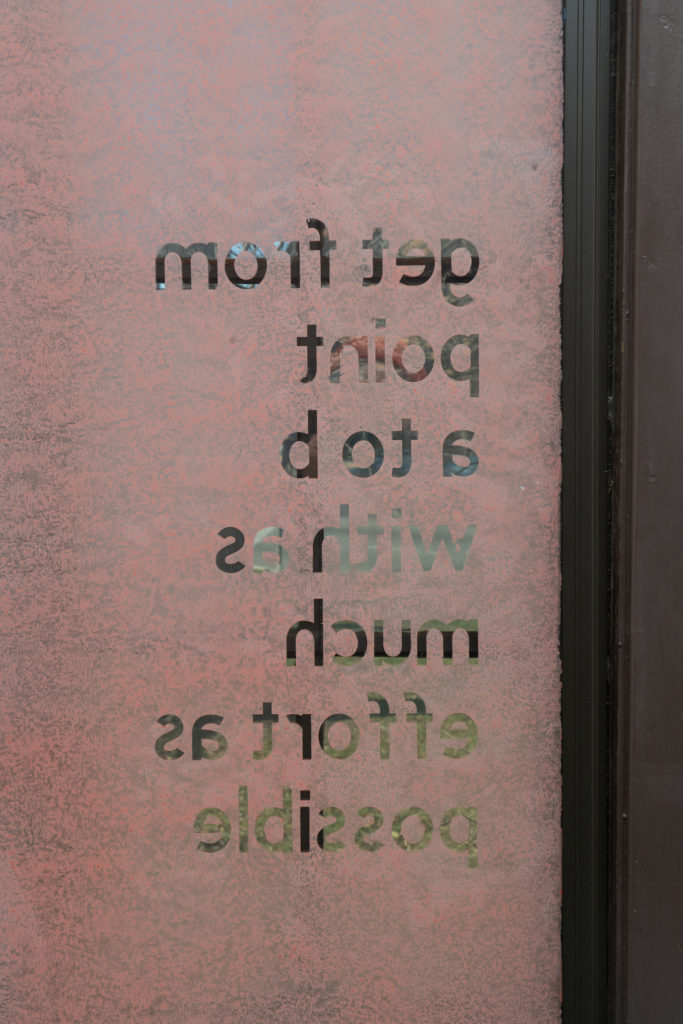 get from
point
a to b
with as
much
effort as
possible